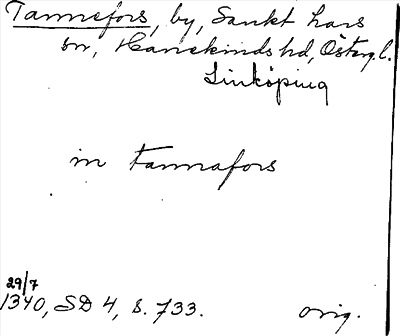 Tannefors, by, Sankt Lars
sn, Hanekinds hd, Östergl.
Linköping
in tannafors
29/7
1340, SD 4, s. 733. orig.